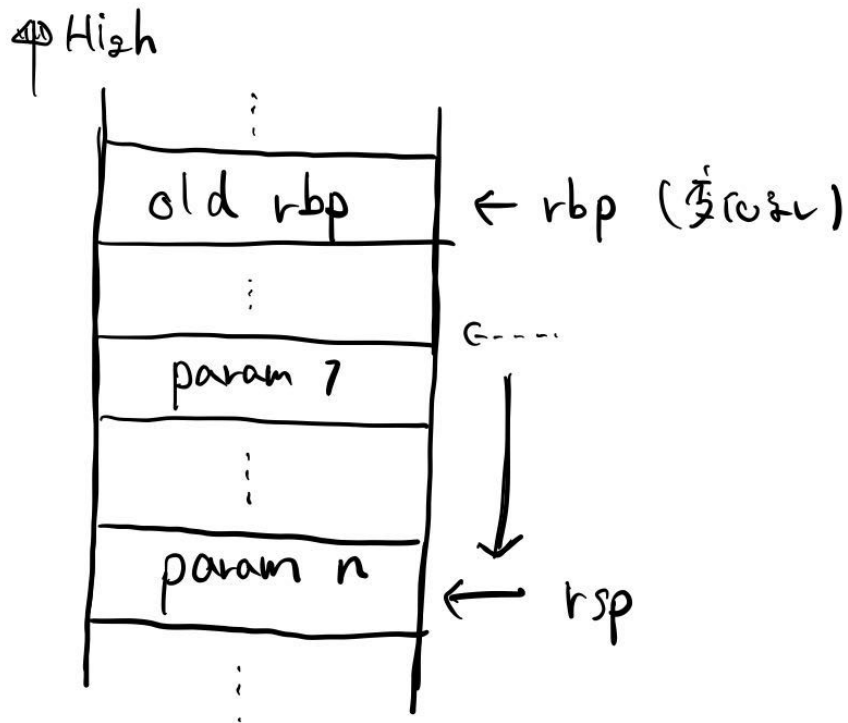 High
old rbp ← rbp (変化なし)
param 7
param n ← rsp